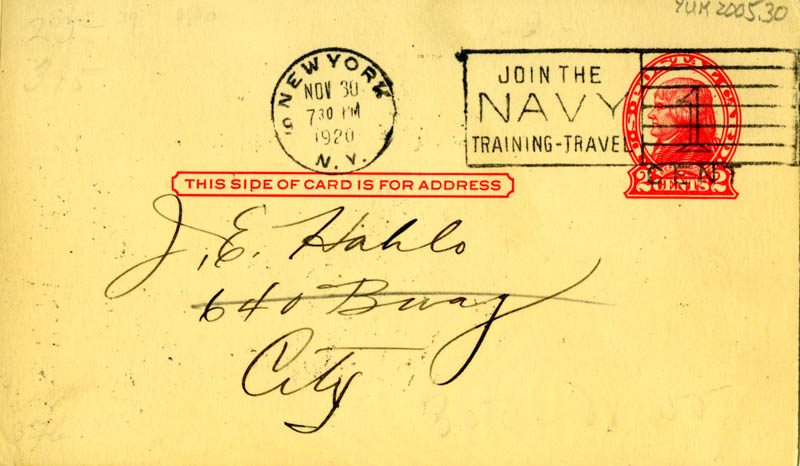 YUM 2005.30
NEW YORK
NOV 30
7 30 PM
1920
N.Y.
JOIN THE
NAVY
TRAINING-TRAVEL
1
CENT
2 CENTS 2
THIS SIDE OF CARD IS FOR ADDRESS
J. E. Hahlo
640 Bway
City